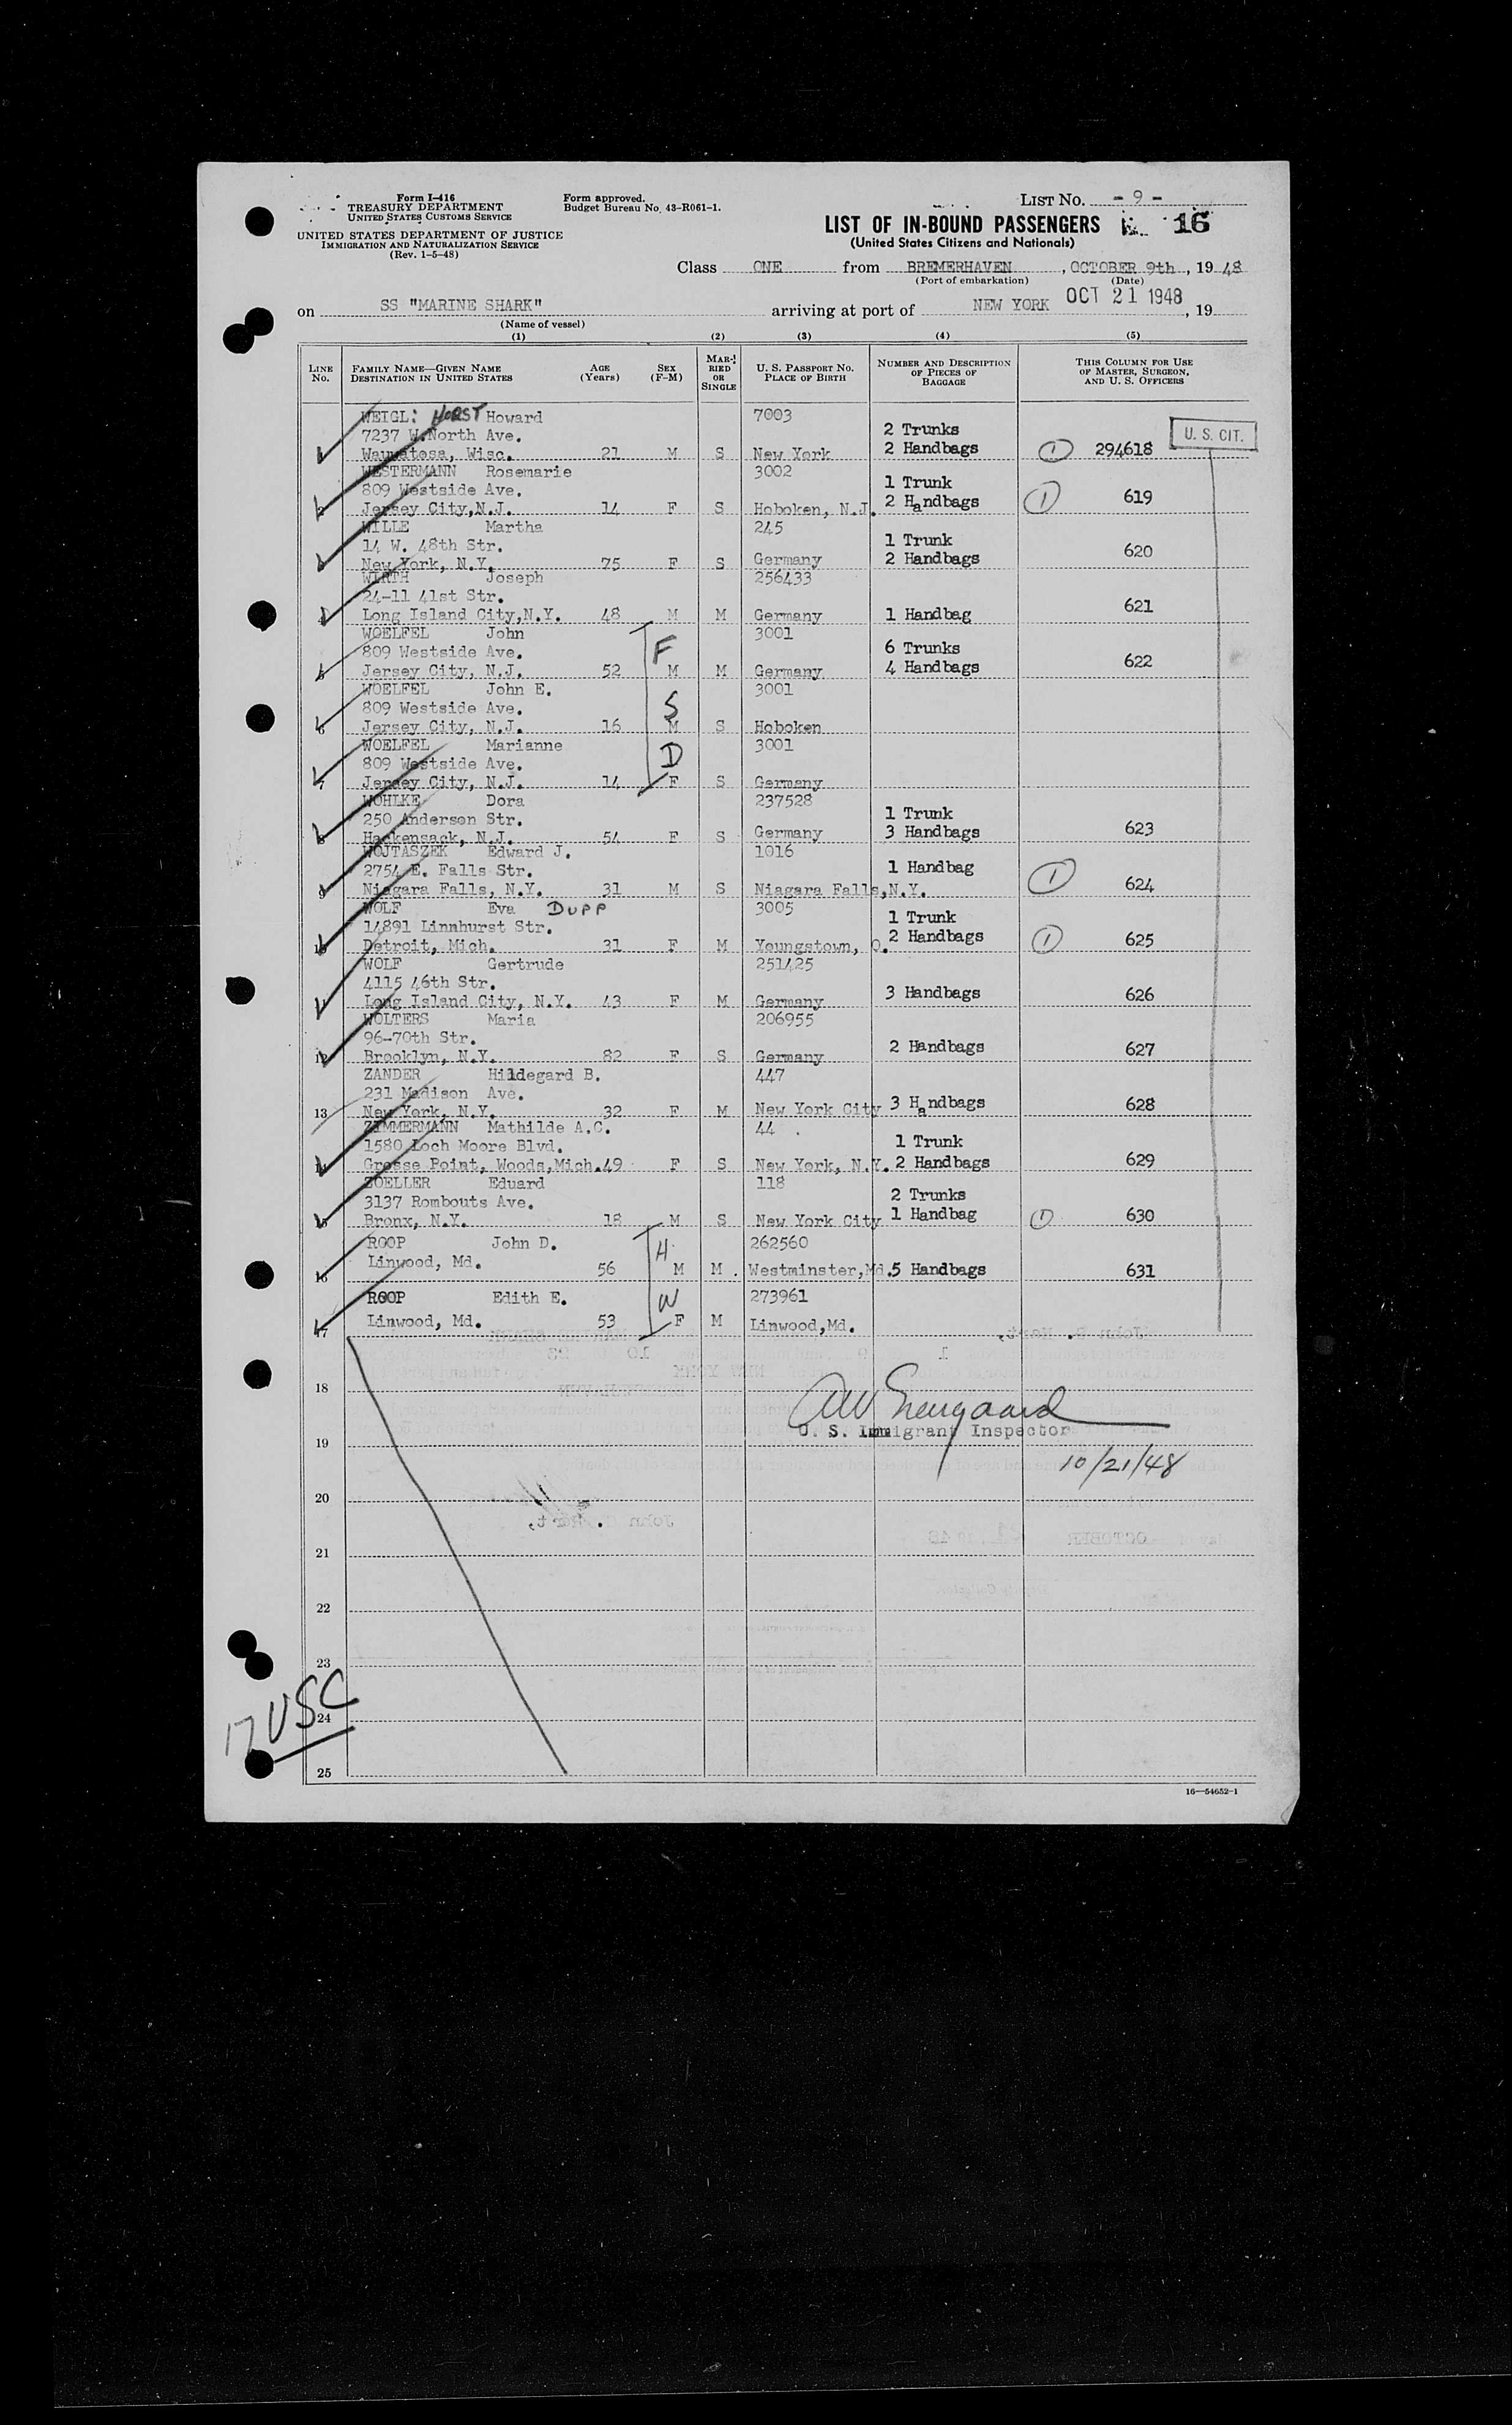 Form I-416
TREASURY DEPARTMENT
UNITED STATES CUSTOMS SERVICE
UNITED STATES DEPARTMENT OF JUSTICE
IMMIGRATION AND NATURALIZATION SERVICE
(Rev. 1-5-48)
Form approved.
Budget Bureau No. 43-R061-1.
LIST No. - 9 -
LIST OF IN-BOUND PASSENGERS 16
(United States Citizens and Nationals)
Class ONE from BREMERHAVEN, OCTOBER 9th, 1948
(Port of embarkation) (Date)
on SS "MARINE SHARK" arriving at port of NEW YORK OCT 21 1948, 19
(Name of vessel)
(1) (2) (3) (4) (5)
LINE No. FAMILY NAME—GIVEN NAME DESTINATION IN UNITED STATES AGE (Years) SEX (F-M) MARRIED OR SINGLE U. S. PASSPORT No. PLACE OF BIRTH NUMBER AND DESCRIPTION OF PIECES OF BAGGAGE THIS COLUMN FOR USE OF MASTER, SURGEON, AND U. S. OFFICERS
WEIGL: HORST Howard 7003
7237 W.North Ave. 2 Trunks U. S. CIT.
Wauwatosa, Wisc. 21 M S New York 2 Handbags 1 294618
WESTERMANN Rosemarie 3002
809 Westside Ave. 1 Trunk
2 Jersey City,N.J. 14 F S Hoboken, N.J. 2 Handbags 1 619
WILLE Martha 245
14 W. 48th Str. 1 Trunk
New York, N.Y. 75 F S Germany 2 Handbags 620
WIRTH Joseph 256433
24-11 41st Str.
Long Island City,N.Y. 48 M M Germany 1 Handbag 621
WOELFEL John F 3001
809 Westside Ave. 6 Trunks
5 Jersey City, N.J. 52 M M Germany 4 Handbags 622
WOELFEL John E. S 3001
809 Westside Ave.
6 Jersey City, N.J. 16 M S Hoboken
WOELFEL Marianne D 3001
809 Westside Ave.
7 Jersey City, N.J. 14 F S Germany
WOHLKE Dora 237528
250 Anderson Str. 1 Trunk
8 Hackensack, N.J. 54 F S Germany 3 Handbags 623
WOJTASZEK Edward J. 1016
2754 E. Falls Str. 1 Handbag
9 Niagara Falls, N.Y. 31 M S Niagara Falls,N.Y. 1 624
WOLF Eva DUPP 3005
14891 Linnhurst Str. 1 Trunk
10 Detroit, Mich. 31 F M Youngstown, O. 2 Handbags 1 625
WOLF Gertrude 251425
4115 46th Str.
11 Long Island City, N.Y. 43 F M Germany 3 Handbags 626
WOLTERS Maria 206955
96-70th Str.
12 Brooklyn, N.Y. 82 F S Germany 2 Handbags 627
ZANDER Hildegard B. 447
231 Madison Ave.
13 New York, N.Y. 32 F M New York City 3 Handbags 628
ZIMMERMANN Mathilde A.C. 44
1580 Loch Moore Blvd. 1 Trunk
14 Grosse Point, Woods,Mich. 49 F S New York, N.Y. 2 Handbags 629
ZOELLER Eduard 118
3137 Rombouts Ave. 2 Trunks
15 Bronx, N.Y. 18 M S New York City 1 Handbag 1 630
ROOP John D. H 262560
Linwood, Md.
16 56 M M. Westminster,Md. 5 Handbags 631
ROOP Edith E. W 273961
17 Linwood, Md. 53 F M Linwood,Md.
18
U. S. Immigrant Inspector
19
10/21/48
20
21
22
23
17 USC
24
25
16—54652-1